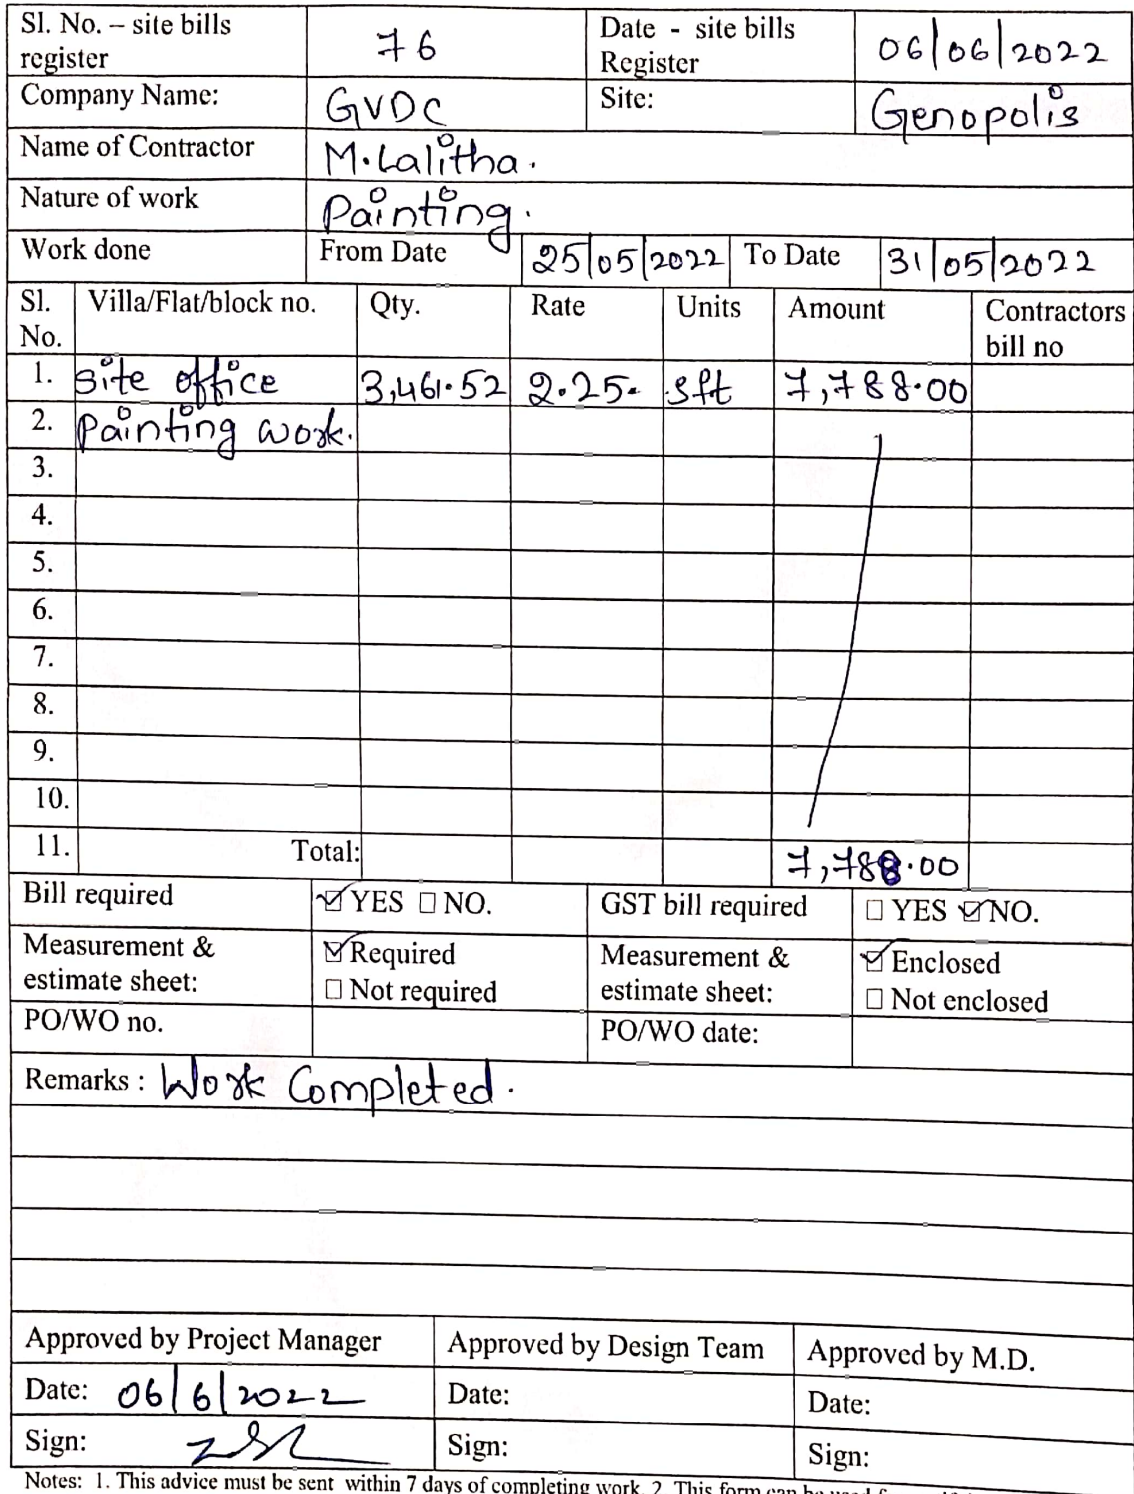 Sl. No. – site bills register 76 Date - site bills Register 06/06/2022
Company Name: GVDC Site: Genopolis
Name of Contractor M.Lalitha.
Nature of work Painting.
Work done From Date 25/05/2022 To Date 31/05/2022
Sl. No. Villa/Flat/block no. Qty. Rate Units Amount Contractors bill no
1. Site office 3,461.52 2.25. sft 7,788.00
2. Painting work.
3.
4.
5.
6.
7.
8.
9.
10.
11. Total: 7,788.00
Bill required ☑ YES ☐ NO. GST bill required ☐ YES ☑ NO.
Measurement & estimate sheet: ☑ Required ☐ Not required Measurement & estimate sheet: ☑ Enclosed ☐ Not enclosed
PO/WO no. PO/WO date:
Remarks : Work Completed.
Approved by Project Manager Approved by Design Team Approved by M.D.
Date: 06/6/2022 Date: Date:
Sign: Sign: Sign:
Notes: 1. This advice must be sent within 7 days of completing work. 2. This form can be used